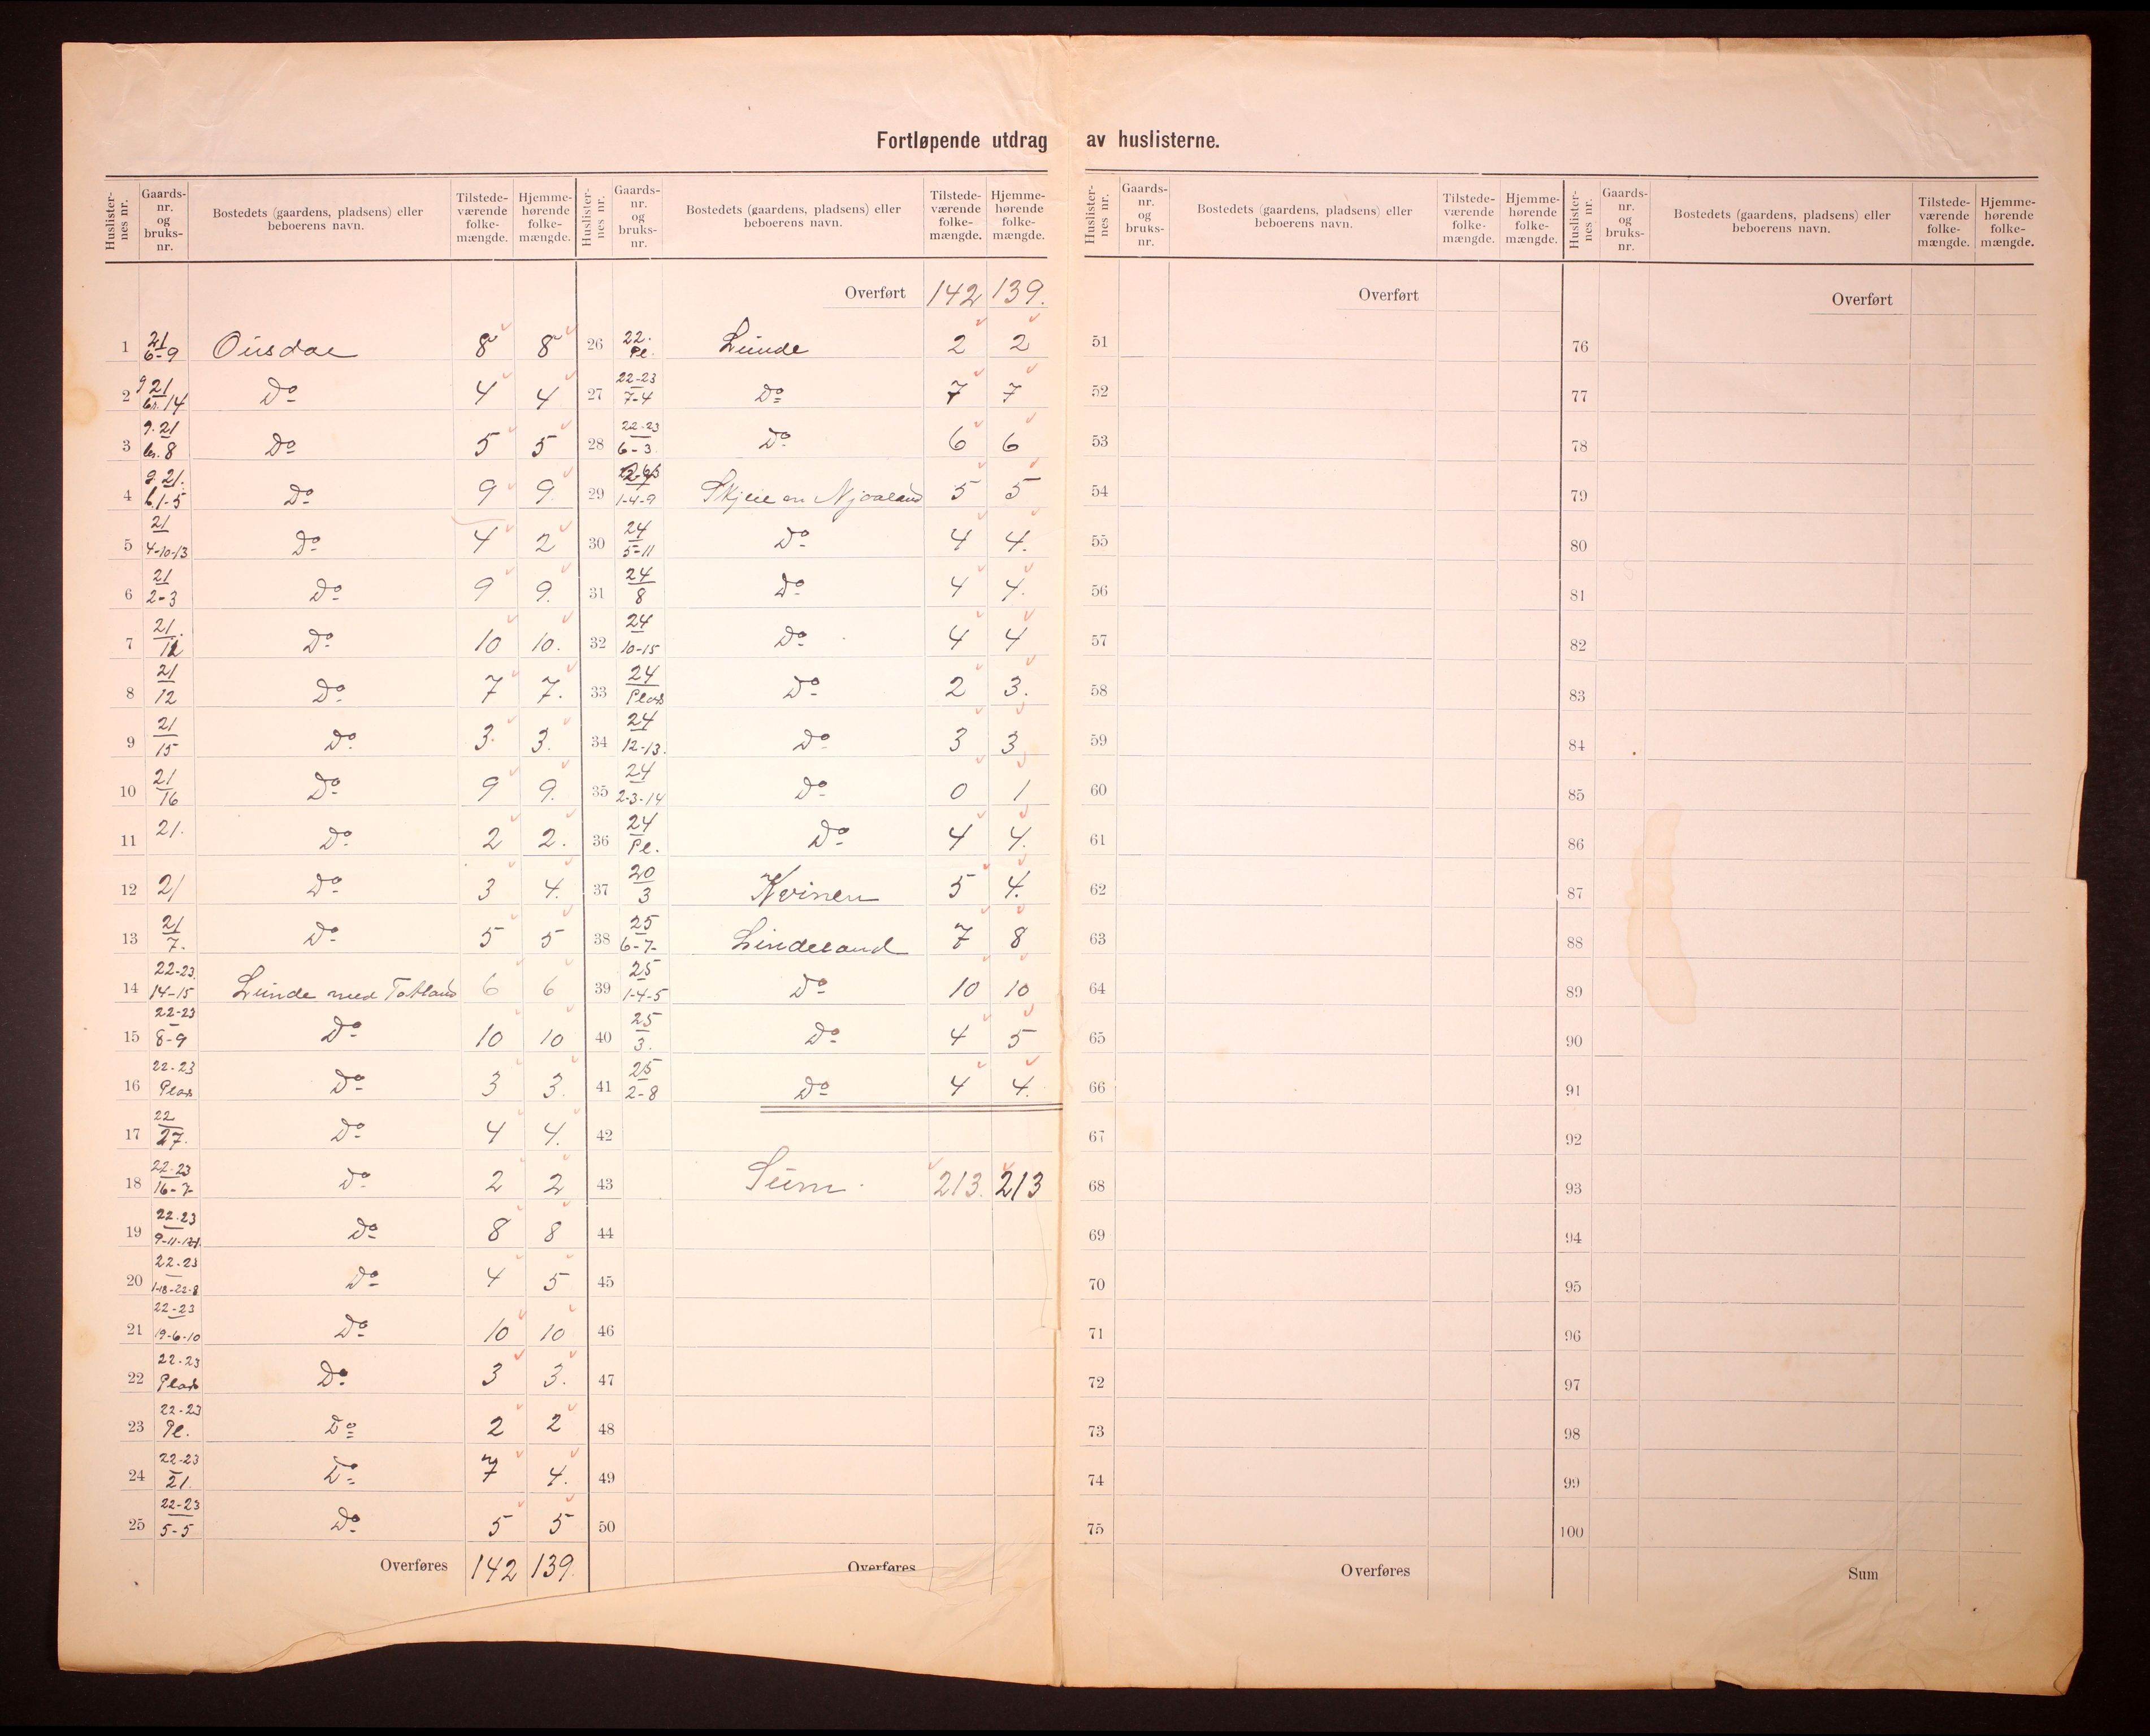 Fortløpende utdrag av huslisterne.
Huslisternes nr. | Gaards-nr. og bruks-nr. | Bostedets (gaardens, pladsens) eller beboerens navn. | Tilstede-værende folke-mængde. | Hjemme-hørende folke-mængde.
1 21/6-9 Ousdal 8 8
2 g 21/br. 14 Do 4 4
3 g. 21/br. 8 Do 5 5
4 g. 21./b. 1-5 Do 9 9.
5 21/4-10-13 Do 4 2
6 21/2-3 Do 9 9.
7 21./11 Do 10 10.
8 21/12 Do 7 7.
9 21/15 Do 3. 3.
10 21/16 Do 9 9.
11 21. Do 2 2.
12 21 Do 3 4.
13 21/7. Do 5 5
14 22-23./14-15 Lunde med Totland 6 6
15 22-23/8-9 Do 10 10
16 22-23/Plads Do 3 3.
17 22/27. Do 4 4.
18 22-23/16-7 Do 2 2
19 22-23/9-11- Do 8 8
20 22-23/1-18-22-8 Do 4 5
21 22-23/19-6-10 Do 10 10
22 22-23/Plads Do 3 3.
23 22-23/Pl. Do 2 2
24 22-23/21. Do 7 4.
25 22-23/5-5 Do 5 5
Overføres 142 139.
Huslisternes nr. | Gaards-nr. og bruks-nr. | Bostedets (gaardens, pladsens) eller beboerens navn. | Tilstede-værende folke-mængde. | Hjemme-hørende folke-mængde.
Overført 142 139.
26 22./Pl. Lunde 2 2
27 22-23/7-4 Do 7 7
28 22-23/6-3. Do 6 6
29 1-4-9 Skjeie Njoaland 5 5
30 24/5-11 Do 4 4.
31 24/8 Do 4 4.
32 24/10-15 Do 4 4
33 24/Plads Do 2 3.
34 24/12-13. Do 3 3
35 24/2-3-14 Do 0 1
36 24/Pl. Do 4 4.
37 20/3 Kvinen 5 4.
38 25/6-7- Lindeland 7 8
39 25/1-4-5 Do 10 10
40 25/3. Do 4 5
41 25/2-8 Do 4 4.
42
43 Sum 213. 213
44
45
46
47
48
49
50
Overføres
Huslisternes nr. | Gaards-nr. og bruks-nr. | Bostedets (gaardens, pladsens) eller beboerens navn. | Tilstede-værende folke-mængde. | Hjemme-hørende folke-mængde.
Overført
51
52
53
54
55
56
57
58
59
60
61
62
63
64
65
66
67
68
69
70
71
72
73
74
75
Overføres
Huslisternes nr. | Gaards-nr. og bruks-nr. | Bostedets (gaardens, pladsens) eller beboerens navn. | Tilstede-værende folke-mængde. | Hjemme-hørende folke-mængde.
Overført
76
77
78
79
80
81
82
83
84
85
86
87
88
89
90
91
92
93
94
95
96
97
98
99
100
Sum